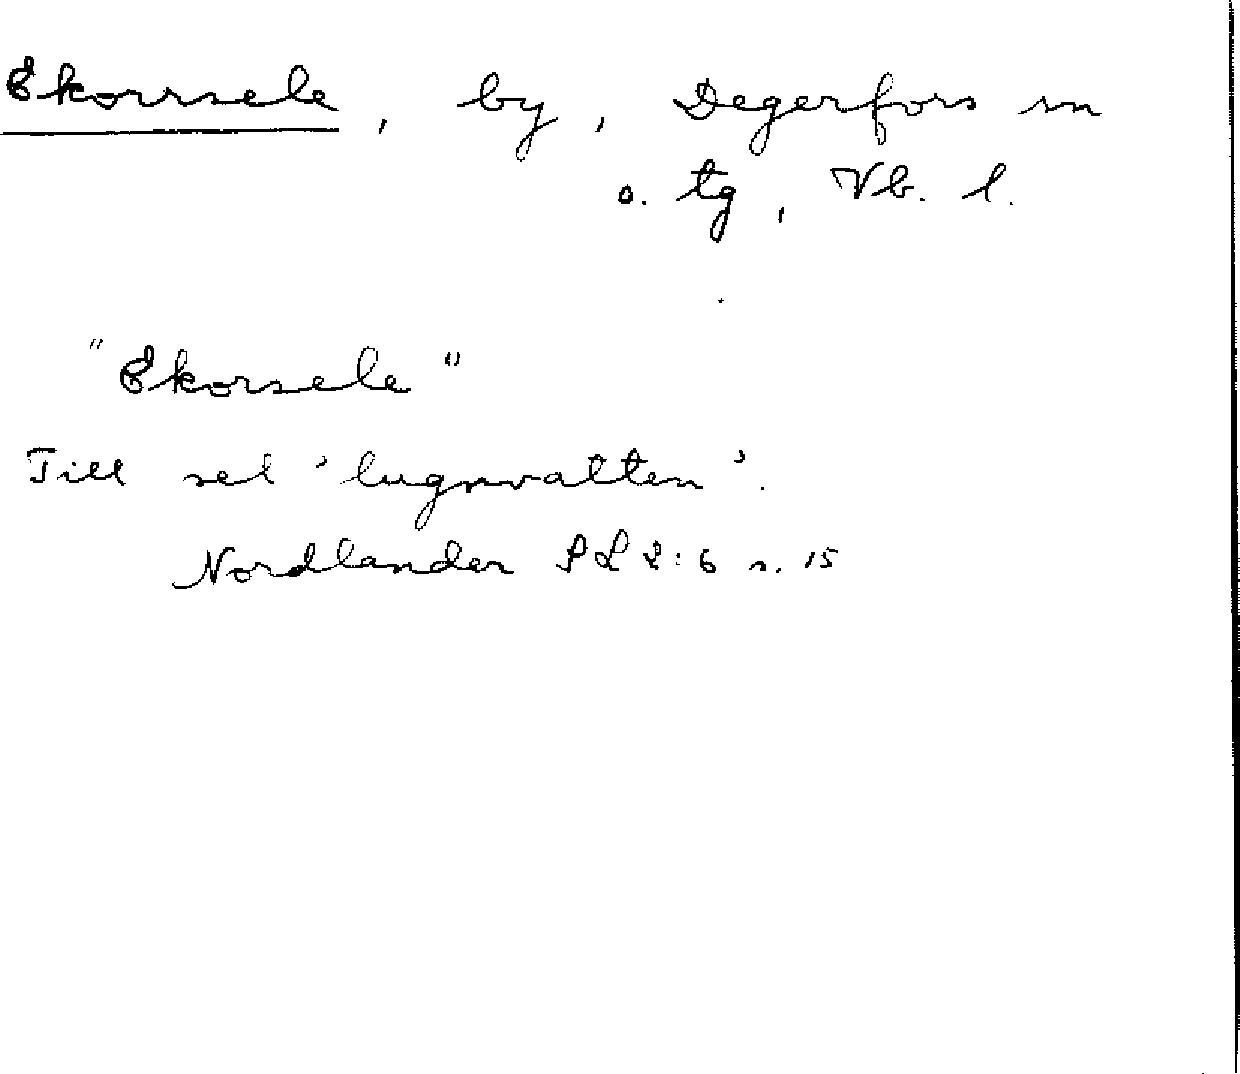 Ekorrsele, by, Degerfors sn
o. tg, Vb. l.
"Ekorsele"
Till sel 'lugnvatten'.
Nordlander SL 2:6 s. 15